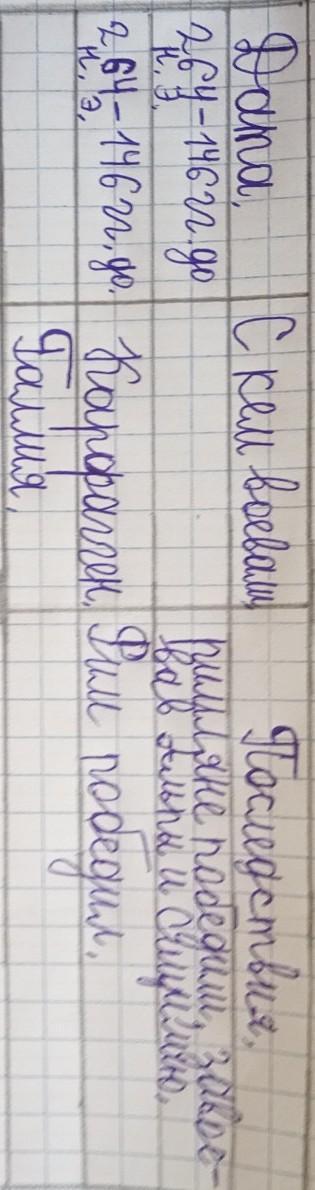 Дата, С кем воевали, Последствия,
264-146 гг. до н. э. римляне победили, завое-
вав Альпы и Сицилию,
264-146 гг. до, н. э, Карфаген, Рим победил,
Галлия,